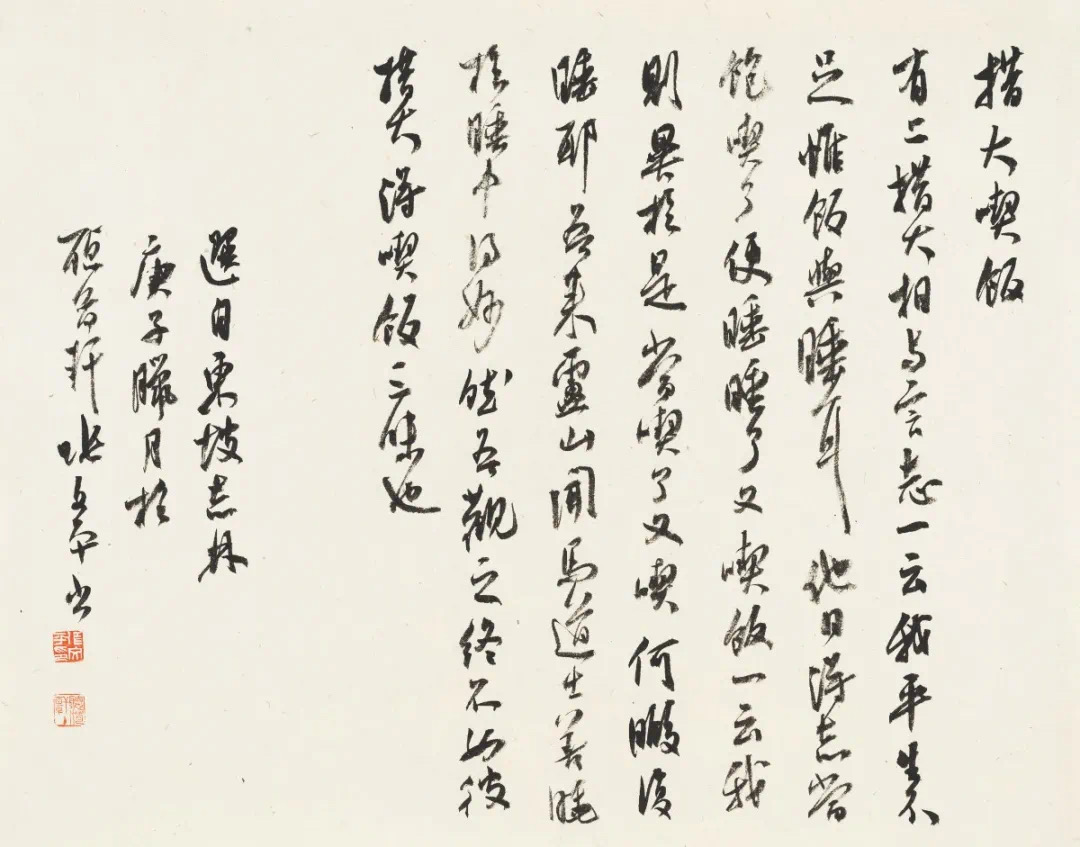 措大喫飯
有二措大相与言志一云我平生不
足惟飯與睡耳他日得志當
飽喫了便睡睡了又喫飯一云我
則異於是當喫了又喫何暇復
睡耶吾來廬山聞馬道士善睡
於睡中得妙然吾觀之終不如彼
措大得喫飯三昧也
選自東坡志林
庚子臘月於